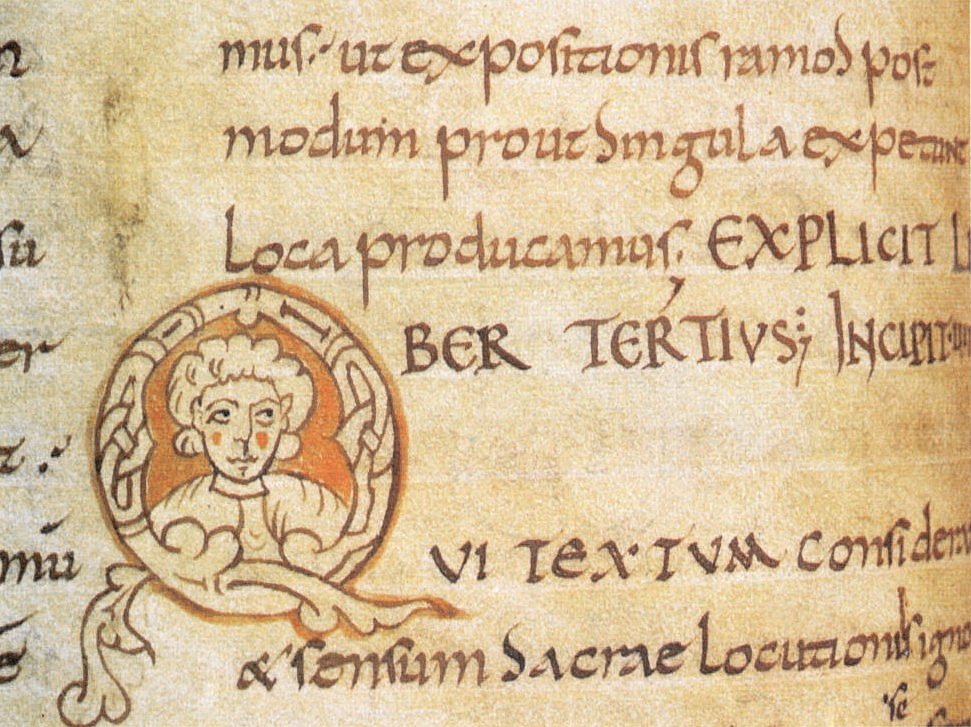 mus·ut expositionis ramos post
modum prout singula expetunt
loca producamus; EXPLICIT LI
BER TERTIVS; INCIPIT
QUI TEXTVM considera
& sensum sacrae locutionis igno